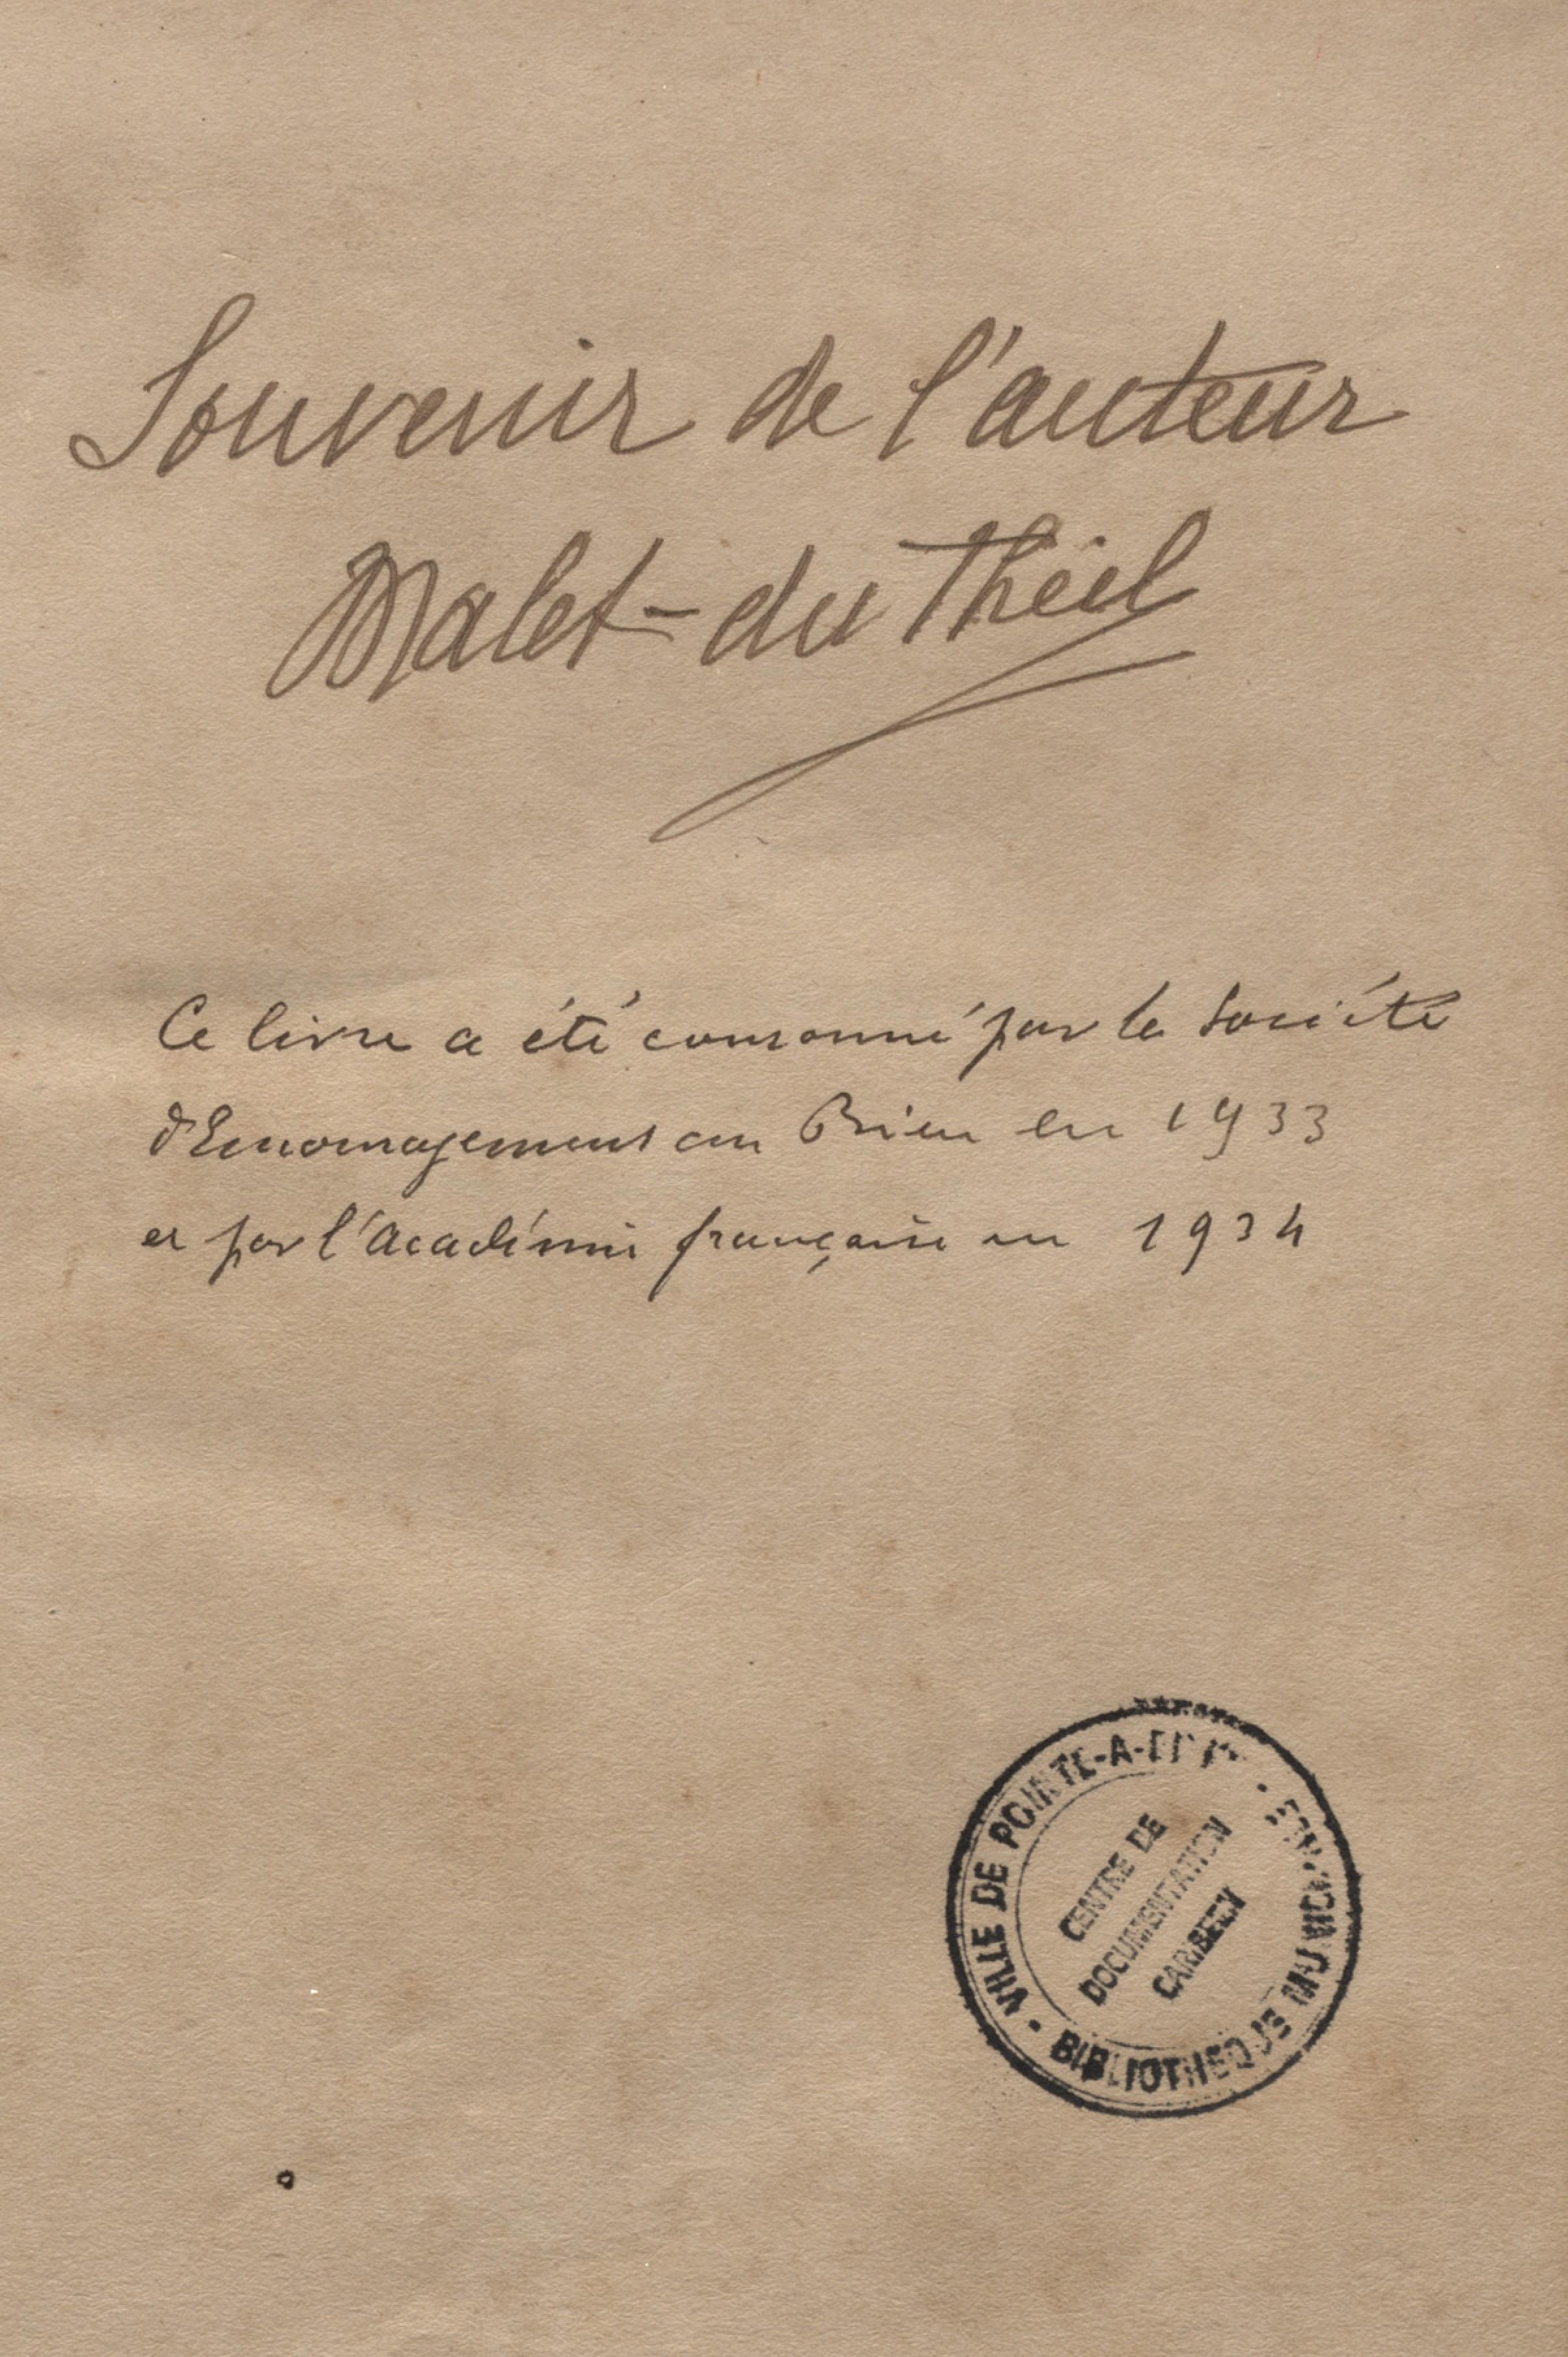 Souvenir de l'auteur
Malet-du Theil
Ce livre a été couronné par la Société
d'Encouragement au Bien en 1933
et par l'Académie française en 1934
VILLE DE POINTE-A-PITRE • BIBLIOTHEQUE MUNICIPALE •
CENTRE DE
DOCUMENTATION
CARIBEEN